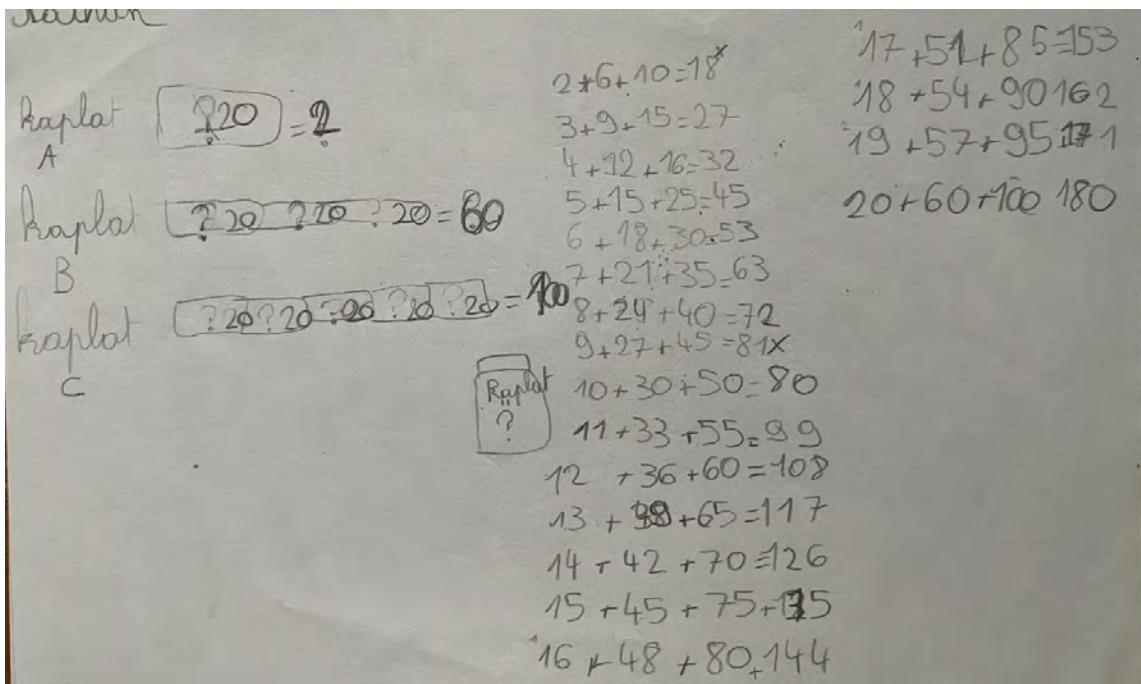 kaplat ?20 = ?
A
kaplat ? 20 ? 20 ? 20 = 60
B
kaplat ? 20 ? 20 ? 20 ? 20 ? 20 = 100
C
Kaplat
?
2+6+10=18x
3+9+15=27
4+12+16=32
5+15+25=45
6+18+30=53
7+21+35=63
8+24+40=72
9+27+45=81x
10+30+50=80
11+33+55=99
12+36+60=108
13+39+65=117
14+42+70=126
15+45+75+135
16+48+80+144
17+51+85=153
18+54+90 162
19+57+95 171
20+60+100 180